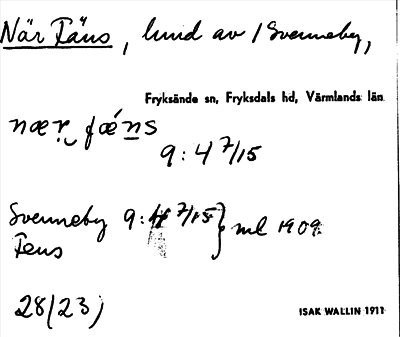 När Fäns, lund av / Svenneby,
Fryksände sn, Fryksdals hd, Värmlands län
nær fæns
9:4 7/15
Svenneby 9:4 7/15 } ml 1909
Fens
28(23)
ISAK WALLIN 1911